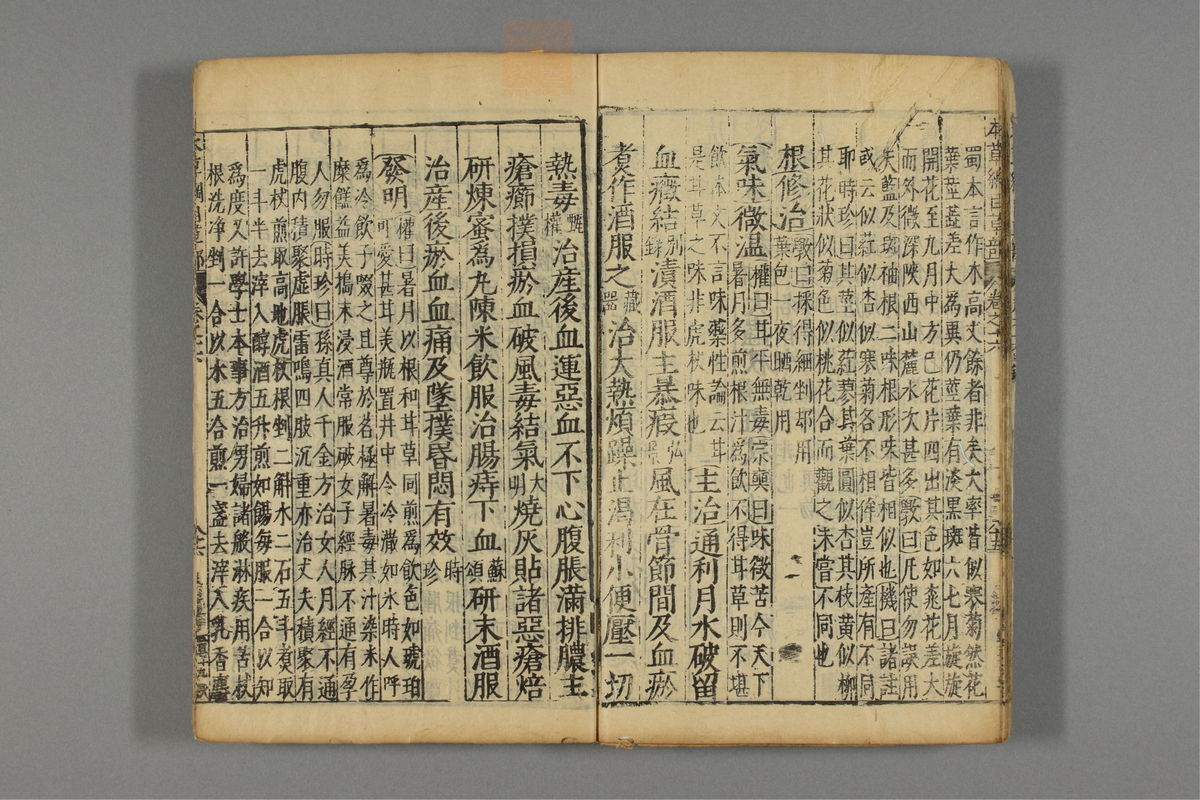 蜀本言作木高丈餘者非矣大率皆似寒菊然花
葉莖蕊差大為異仍莖葉有淡黒斑六七月旋旋
開花至九月中方已花片四出其色如桃花差大
而外微深陝西山麓水次甚多斅曰凡使勿誤用
天藍及斑袖根二味根形味皆相似也機曰諸註
或云似葒似杏似寒菊各不相侔豈所產有不同
耶時珍曰其莖似葒蓼其葉圓似杏其枝黄似柳
其花狀似菊色似桃花合而觀之未嘗不同也
根修治斅曰採得細剉却用
葉包一夜晒乾用
氣味微温權曰甘平無毒宗奭曰味微苦今天下
暑月多煎根汁為飲不得甘草則不堪
飲本文不言味藥性論云甘
是甘草之味非虎杖味也
主治通利月水破留
血癥結别錄漬酒服主暴瘕弘景風在骨節間及血瘀
煮作酒服之藏器治大熱煩躁止渴利小便壓一切
熱毒甄權治産後血運惡血不下心腹脹滿排膿主
瘡癤撲損瘀血破風毒結氣大明燒灰貼諸惡瘡焙
研煉蜜為丸陳米飲服治腸痔下血蘇頌研末酒服
治産後瘀血血痛及墜撲昏悶有效時珍
發明權曰暑月以根和甘草同煎為飲色如琥珀
可愛甚甘美瓶置井中令冷澈如氷時人呼
為冷飲子啜之且尊於茗極解暑毒其汁染米作
糜餻益美擣末浸酒常服破女子經脉不通有孕
人勿服時珍曰孫真人千金方治女人月經不通
腹内積聚虛脹雷鳴四肢沉重亦治丈夫積聚有
虎杖煎取高地虎杖根剉二斛水二石五斗煮取
一斗半去滓入醇酒五升煎如餳每服一合以知
為度又許學士本事方治男婦諸般淋疾用苦杖
根洗净剉一合以水五合煎一盞去滓入乳香麝